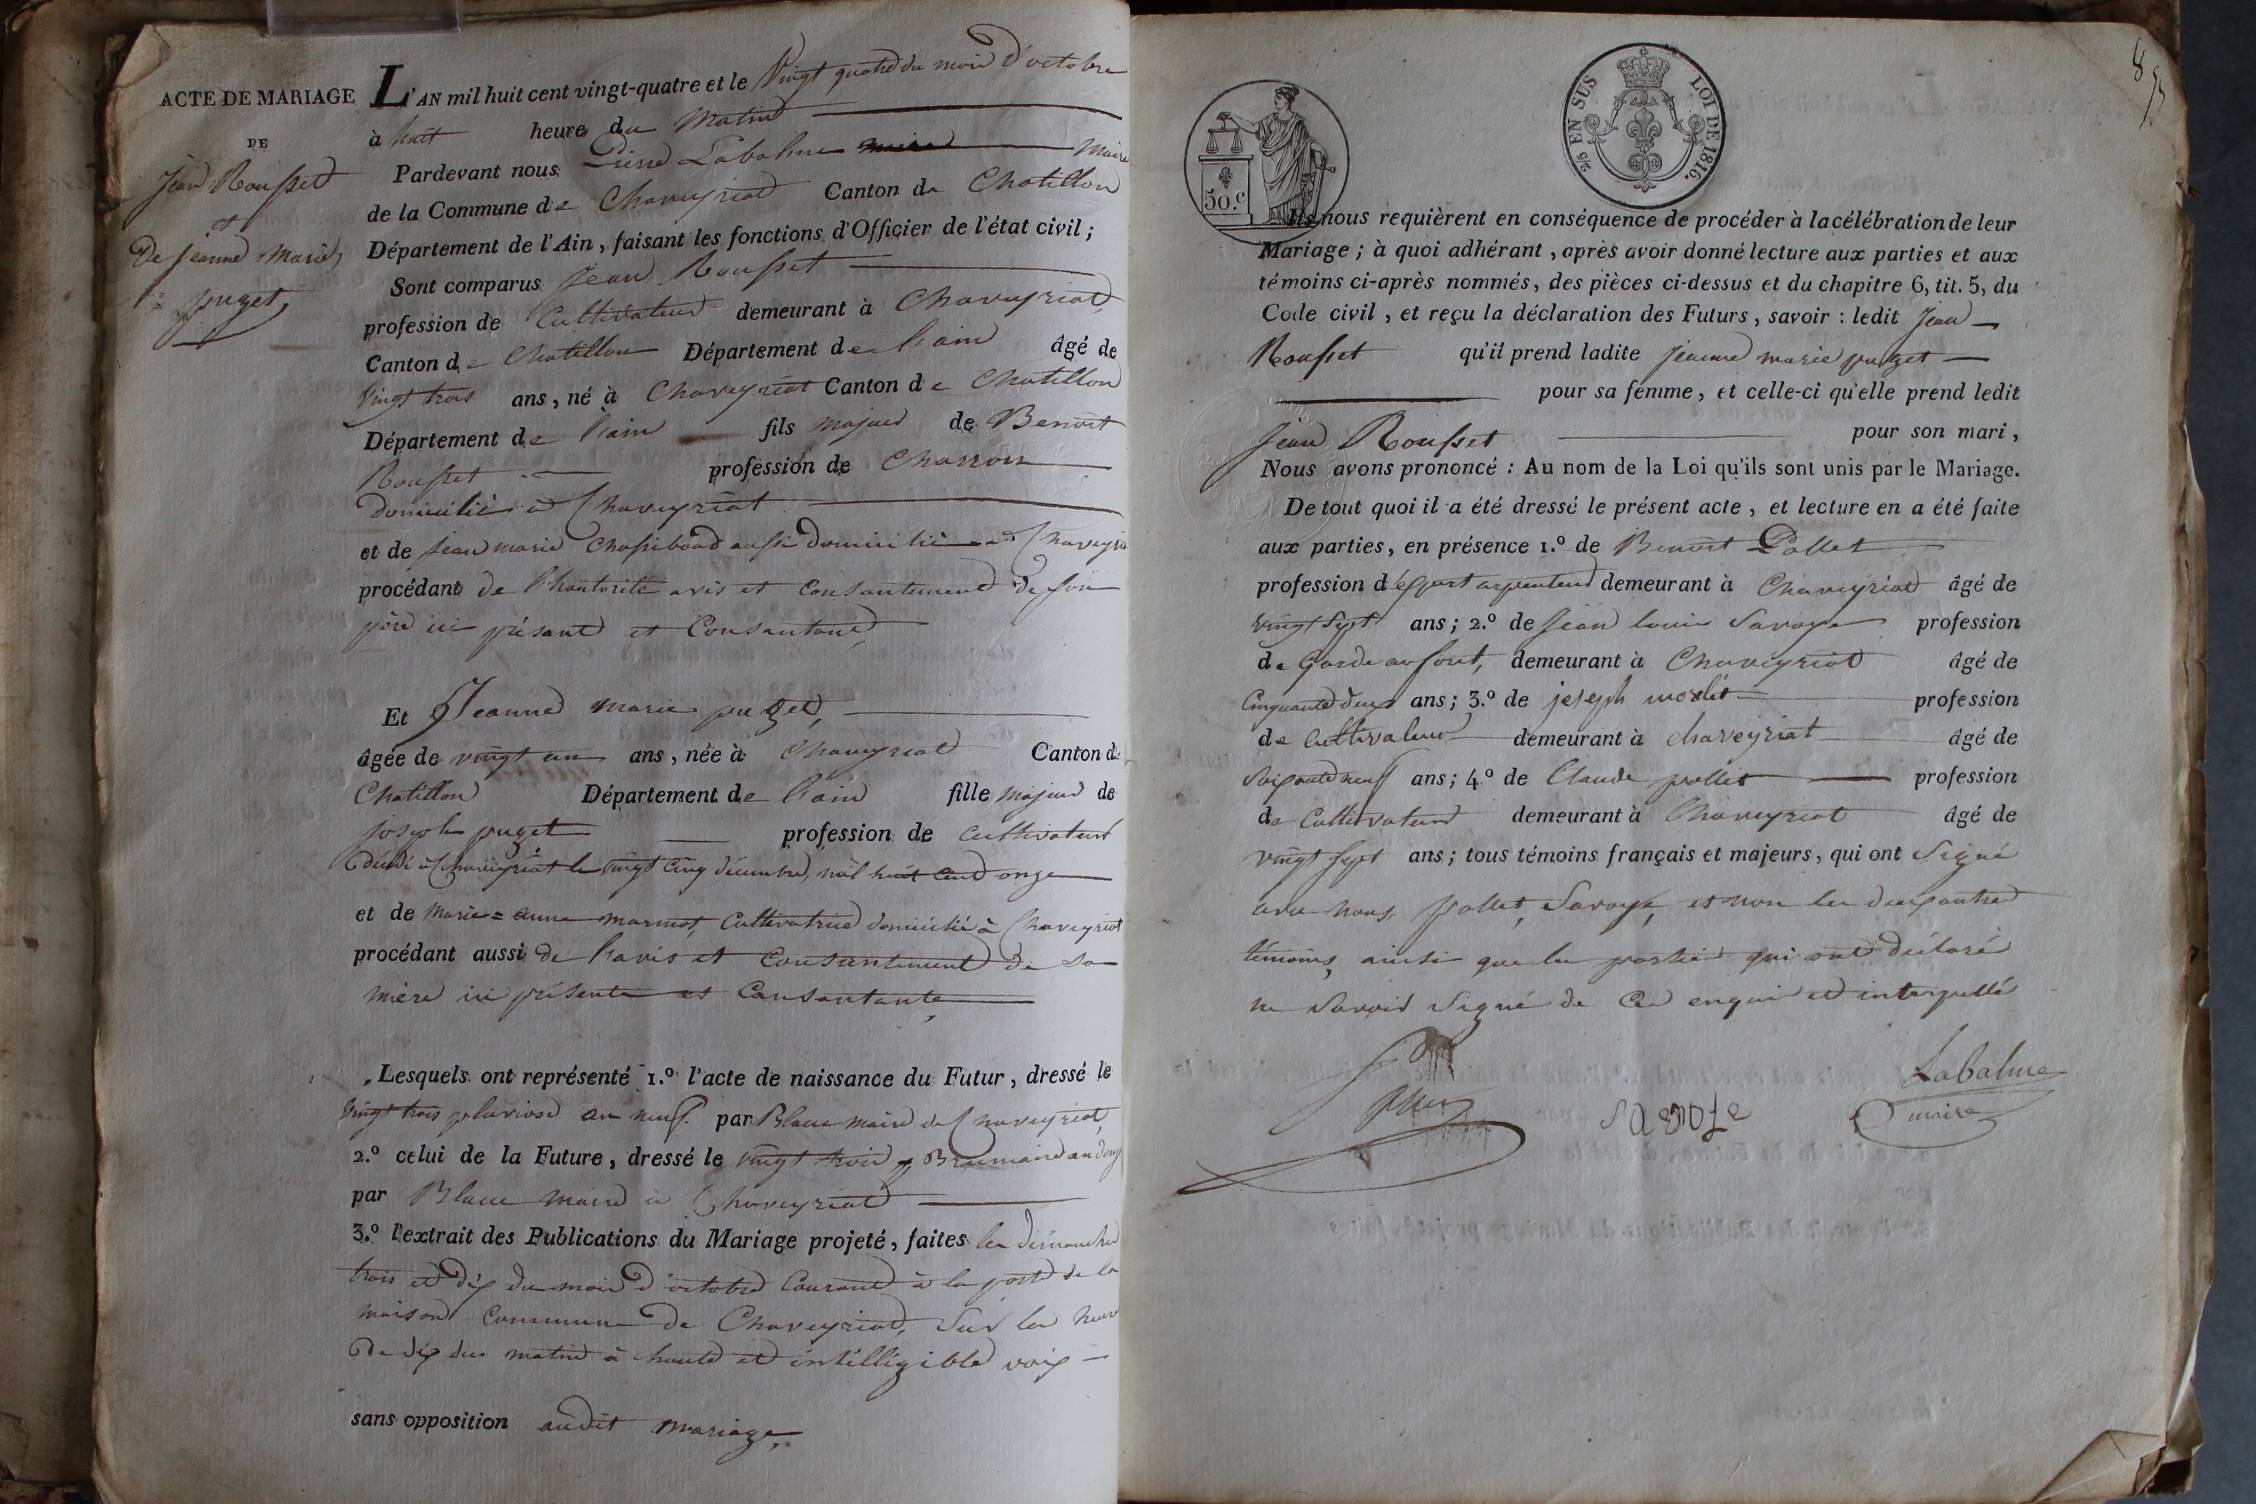 ACTE DE MARIAGE
DE
Jean Rousset
et
De jeanne Marie
puget,
L'AN mil huit cent vingt-quatre et le Vingt quatre du mois d'octobre
à huit heure du Matin
Pardevant nous Pierre Labalme maire Maire
de la Commune de Chaveyriat Canton de Chatillon
Département de l'Ain, faisant les fonctions d'Officier de l'état civil;
Sont comparus Jean Rousset
profession de Cultivateur demeurant à Chaveyriat
Canton de Chatillon Département de l'ain âgé de
Vingt trois ans, né à Chaveyriat Canton de Chatillon
Département de l'ain fils majeur de Benoit
Rousset profession de Charron
domicilié à Chaveyriat
et de jeanmarie Chassiboud aussi domicilié à Chaveyria
procédant de l'hautorité avis et Consantement de son
père ici présant et Consantant,
Et Jeanne marie puget,
âgée de vingt un ans, née à Chaveyriat Canton de
Chatillon Département de l'ain fille majeur de
joseph puget profession de cultivateur
décédé à Chaveyriat le vingt cinq décembre, mil huit cent onze
et de Marie=anne marmot, Cultivatrice domicilié à Chaveyriat
procédant aussi de l'avis et Consantement de sa
mère ici présente et Consantante,
Lesquels ont représenté 1.º l'acte de naissance du Futur, dressé le
Vingt trois pluviose an neuf. par Blanc maire de Chaveyriat,
2.º celui de la Future, dressé le vingt trois Brumaire an douz
par Blanc maire à Chaveyriat
3.º l'extrait des Publications du Mariage projeté, faites les dimanches
trois et dix du mois d'octobre Courant à la porte de la
maison Commune de Chaveyriat, sur les heur
De dix du matin à haute et intélligible voix
sans opposition audit mariage,
8
50.c
2/5 EN SUS LOI DE 1816.
Ils nous requièrent en conséquence de procéder à la célébration de leur
Mariage; à quoi adhérant, après avoir donné lecture aux parties et aux
témoins ci-après nommés, des pièces ci-dessus et du chapitre 6, tit. 5, du
Code civil, et reçu la déclaration des Futurs, savoir: ledit Jean
Rousset qu'il prend ladite jeanne marie puget
pour sa femme, et celle-ci qu'elle prend ledit
Jean Rousset pour son mari,
Nous avons prononcé: Au nom de la Loi qu'ils sont unis par le Mariage.
De tout quoi il a été dressé le présent acte, et lecture en a été faite
aux parties, en présence 1.º de Benoit Pollet
profession d'expert arpenteur demeurant à Chaveyriat âgé de
vingt sept ans; 2.º de Jean louis Savoye profession
de Garde au foret, demeurant à Chaveyriat âgé de
Cinquante deux ans; 3.º de joseph morlet profession
de Cultivateur demeurant à chaveyriat âgé de
Soixante neuf ans; 4.º de Claude pollet profession
de Cultivateur demeurant à Chaveyriat âgé de
vingt sept ans; tous témoins français et majeurs, qui ont Signé
avec nous, pollet, Savoye, et non les deux autre
témoins, ainsi que les partie qui ont déclaré
ne Savoir Signé de Ce enquis et interpellé
Labalme
maire
Savoye